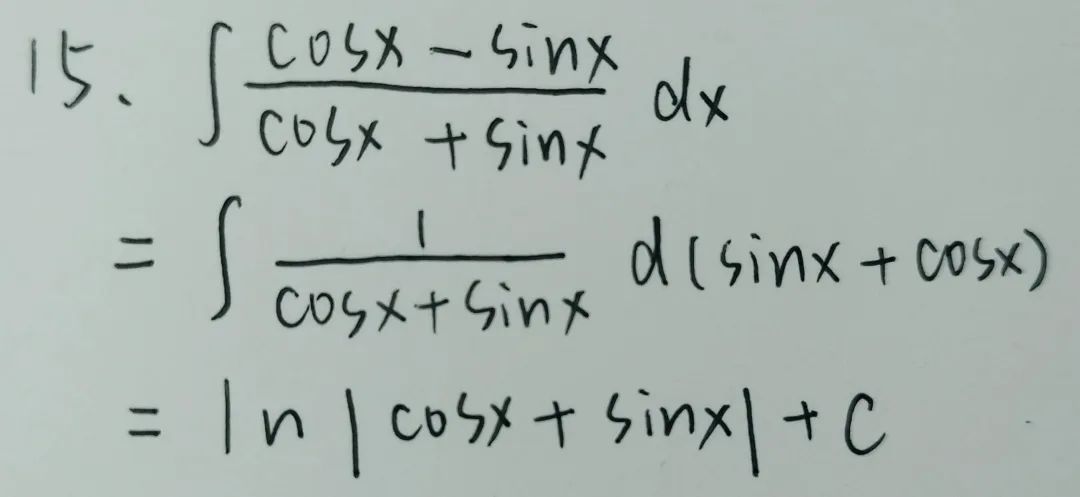 15. ∫ (cosx - sinx)/(cosx + sinx) dx
= ∫ 1/(cosx + sinx) d(sinx + cosx)
= ln|cosx + sinx| + C